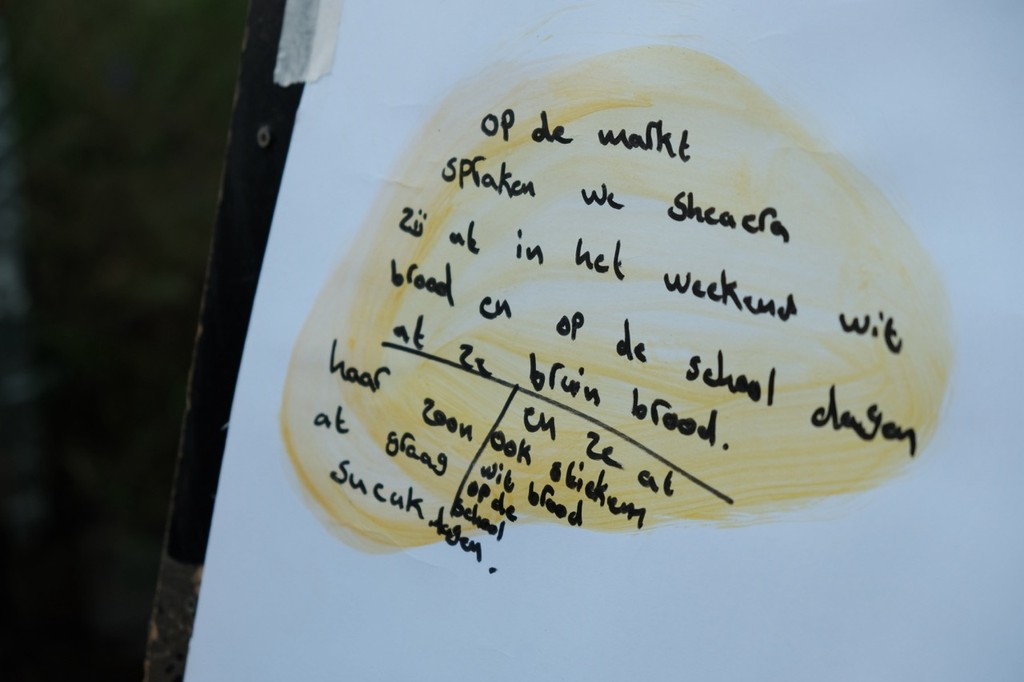 op de markt
spraken we Sheaera
Zij at in het weekend wit
brood en op de school dagen
at ze bruin brood.
haar zoon
at graag
sucuk
en ze at
ook stiekem
wit brood
op de
school
dagen.